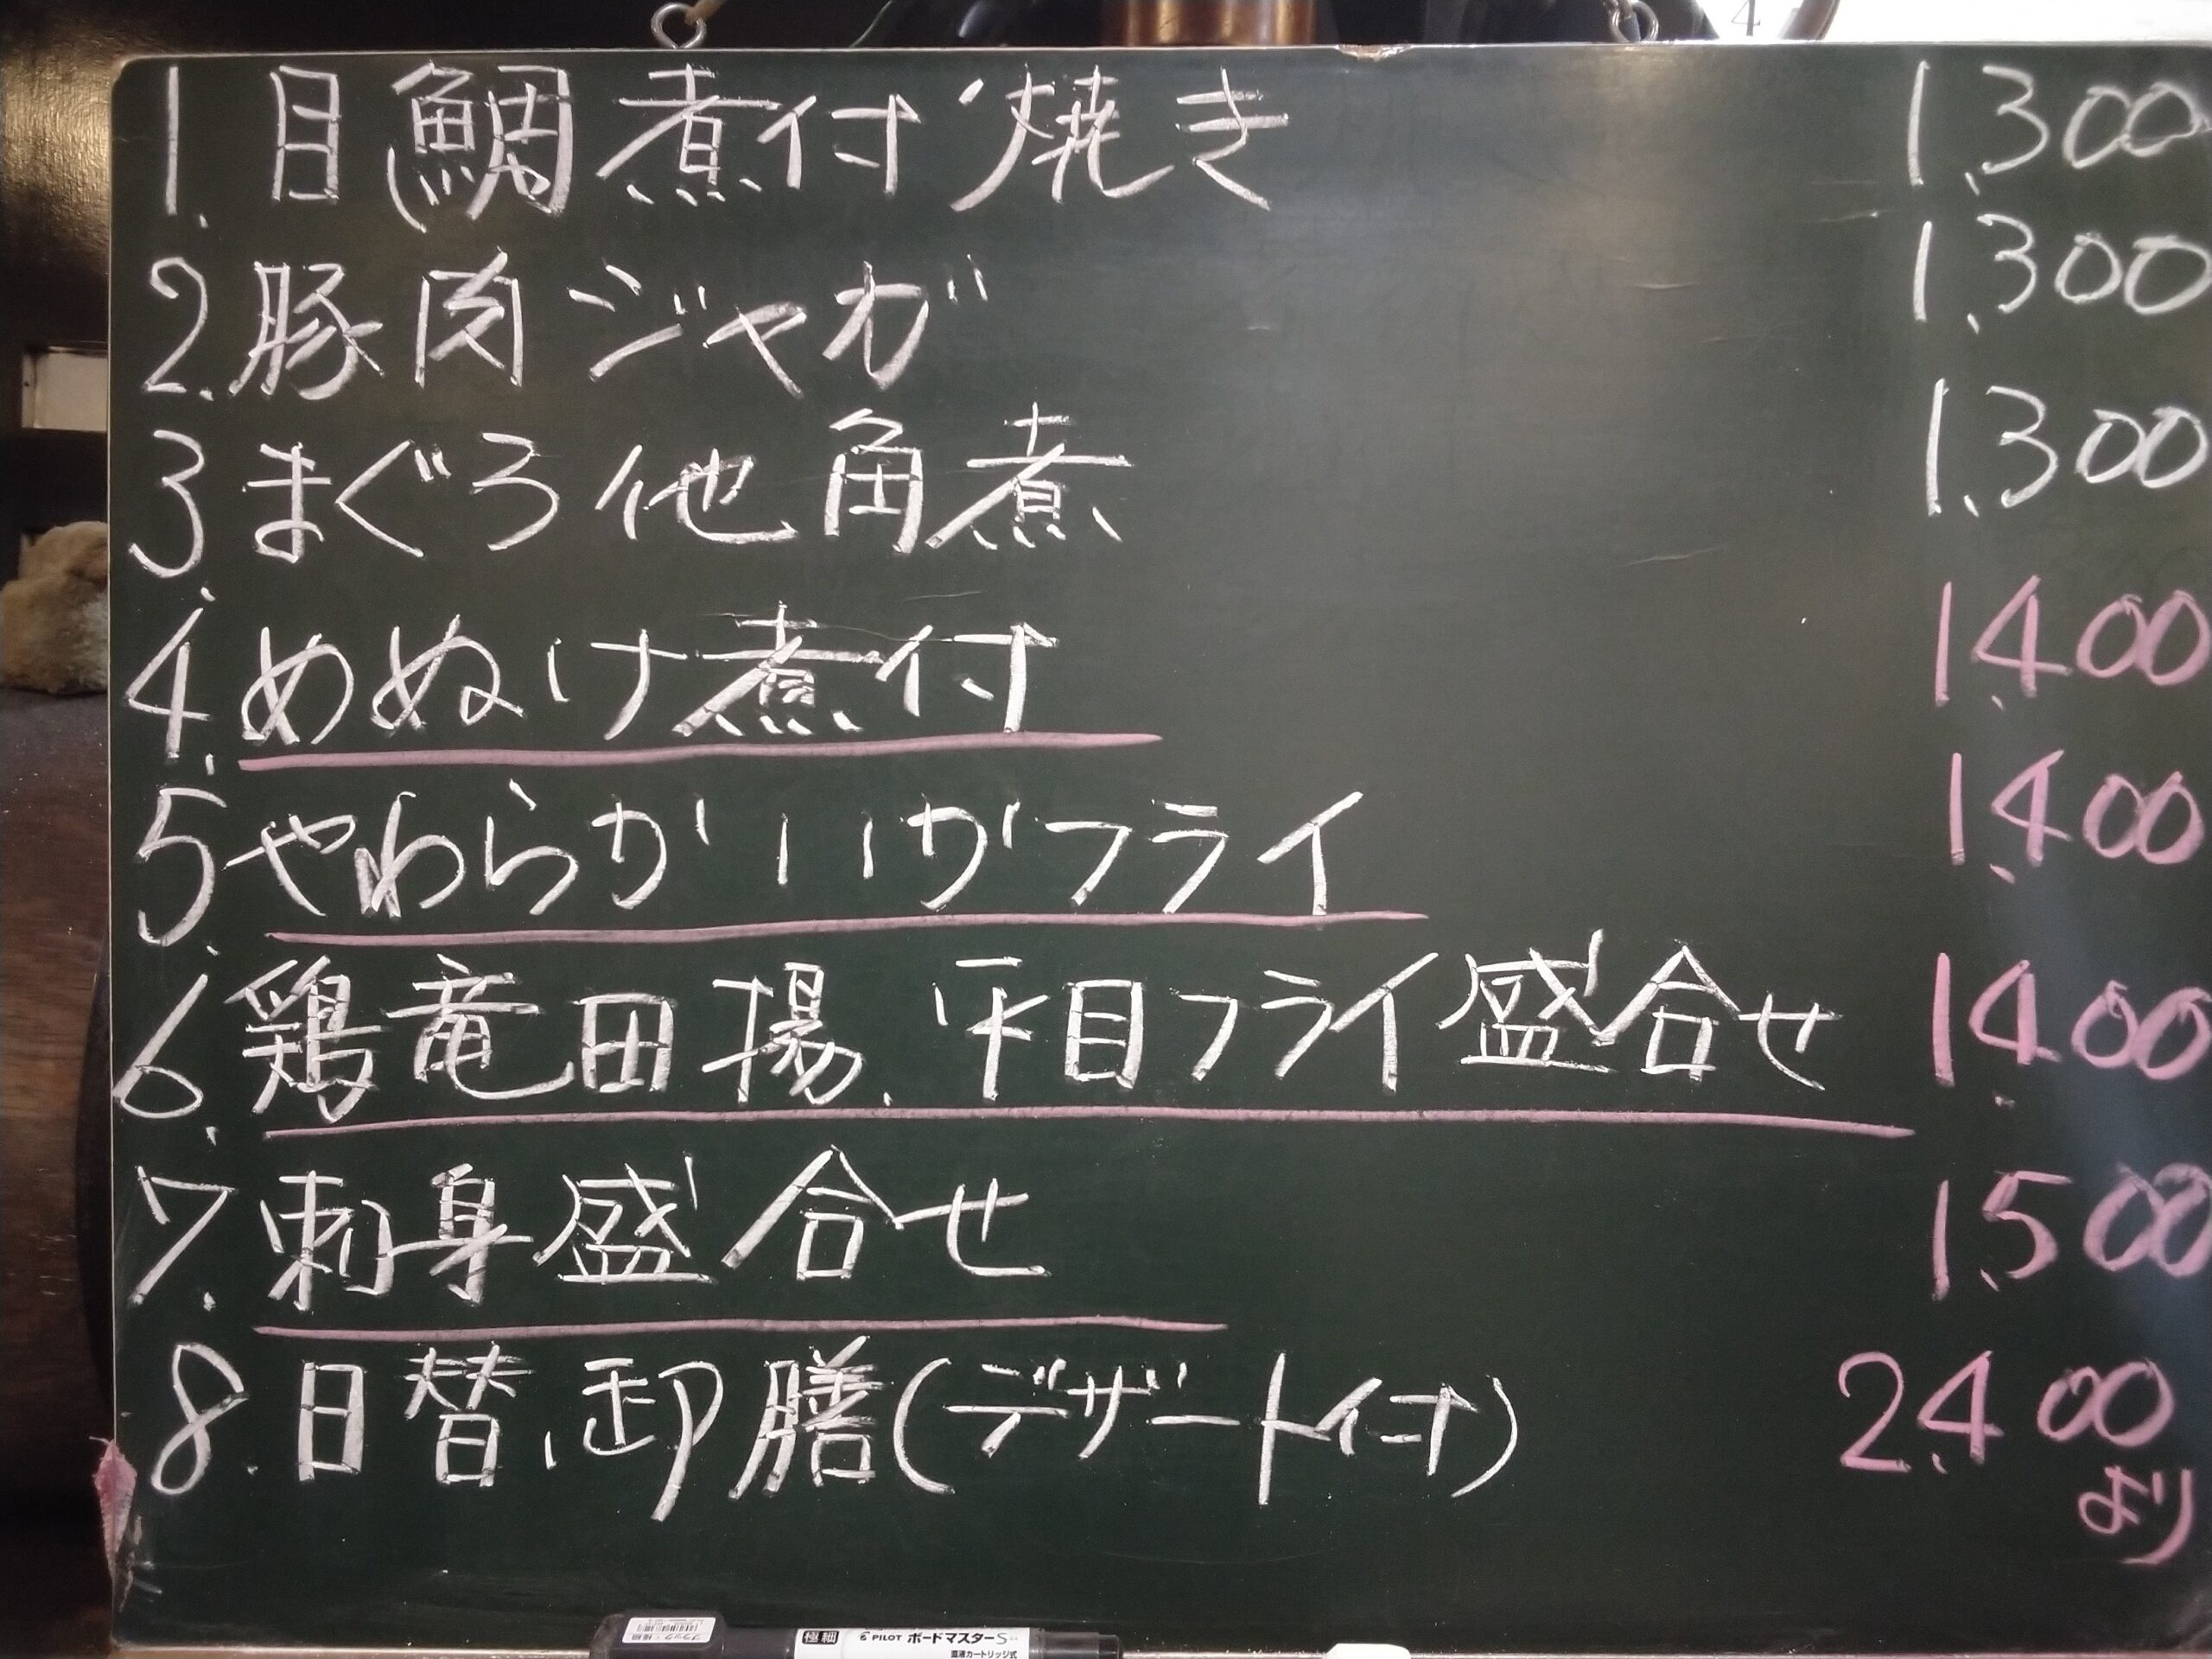 1. 目鯛煮付焼き 1,300
2. 豚肉ジャガ 1,300
3. まぐろ他角煮 1,300
4. めぬけ煮付 1,400
5. やわらかいかフライ 1,400
6. 鶏竜田揚、平目フライ盛合せ 1,400
7. 刺身盛合せ 1,500
8. 日替、卸膳(デザート付) 2,400
より
極細 PILOT ボードマスターS
直液カートリッジ式